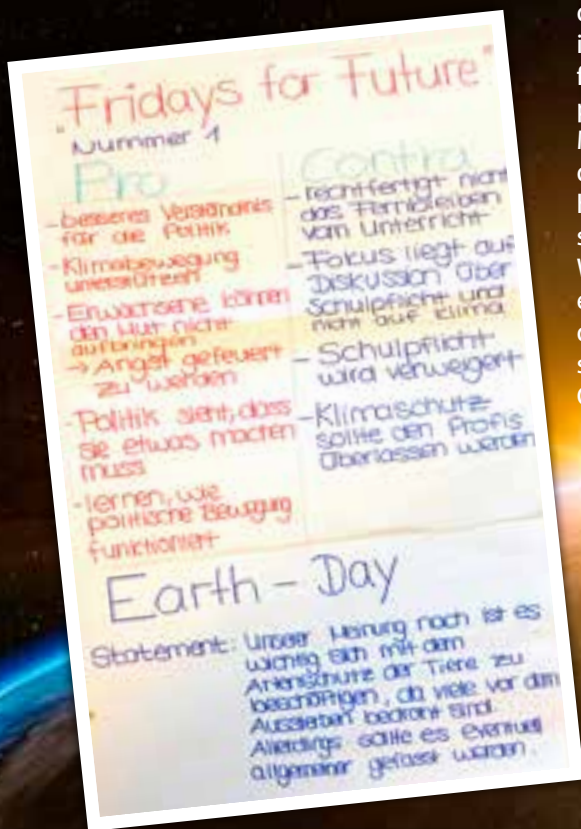 "Fridays for Future"
Nummer 1
Pro
- besseres Verständnis
für die Politik
- Klimabewegung
unterstützen
- Erwachsene können
den Mut nicht
aufbringen
→ Angst gefeuert
zu werden
- Politik sieht, dass
sie etwas machen
muss
- lernen, wie
politische Bewegung
funktioniert
Contra
- rechtfertigt nicht
das Fernbleiben
vom Unterricht
- Fokus liegt auf
Diskussion über
Schulpflicht und
nicht auf Klima
- Schulpflicht
wird verweigert
- Klimaschutz
sollte den Profis
überlassen werden
Earth - Day
Statement: Unserer Meinung nach ist es
wichtig sich mit dem
Artenschutz der Tiere zu
beschäftigen, da viele vor dem
Aussterben bedroht sind.
Allerdings sollte es eventuell
allgemeiner gefasst werden.